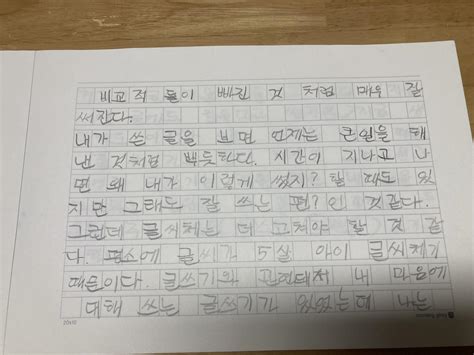 비교적 돌이 빠진 것 처럼 매우 잘
써진다.
내가 쓴 글을 보면 언제는 큰일을 해
낸 것처럼 뿌듯하다. 시간이 지나고 나
면 왜 내가 이렇게 썼지? 할 때도 있
지만 그래도 잘 쓰는 편? 인 것 같다.
그런데 글씨체는 더 고쳐야 할 것 같
다. 평소에 글씨가 5살 아이 글씨체기
때문이다. 글쓰기와 관련돼서 내 마음에
대해 쓰는 글쓰기가 있었는데 나는